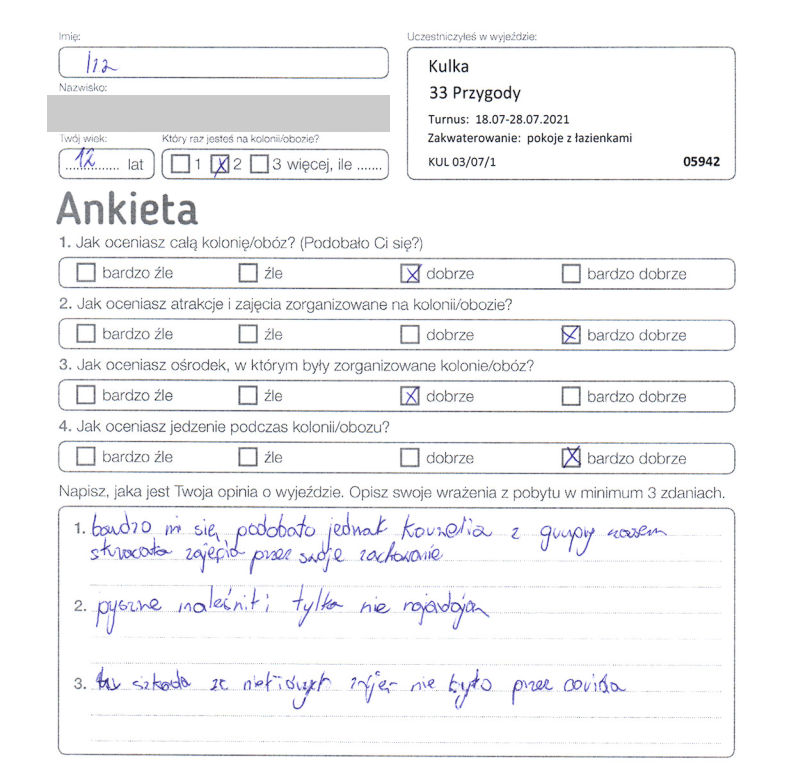 Imię:
Uczestniczyłeś w wyjeździe:
Iza
Kulka
Nazwisko:
33 Przygody
Turnus: 18.07-28.07.2021
Twój wiek:
Który raz jesteś na kolonii/obozie?
Zakwaterowanie: pokoje z łazienkami
12 lat
1 2 3 więcej, ile .......
KUL 03/07/1 05942
Ankieta
1. Jak oceniasz całą kolonię/obóz? (Podobało Ci się?)
bardzo źle źle dobrze bardzo dobrze
2. Jak oceniasz atrakcje i zajęcia zorganizowane na kolonii/obozie?
bardzo źle źle dobrze bardzo dobrze
3. Jak oceniasz ośrodek, w którym były zorganizowane kolonie/obóz?
bardzo źle źle dobrze bardzo dobrze
4. Jak oceniasz jedzenie podczas kolonii/obozu?
bardzo źle źle dobrze bardzo dobrze
Napisz, jaka jest Twoja opinia o wyjeździe. Opisz swoje wrażenia z pobytu w minimum 3 zdaniach.
1. bardzo mi się podobało jednak z grupy
zajęcia przez swoje zachowanie
2. pyszne tylko nie
3. szkoda że zajęć nie było przez covida